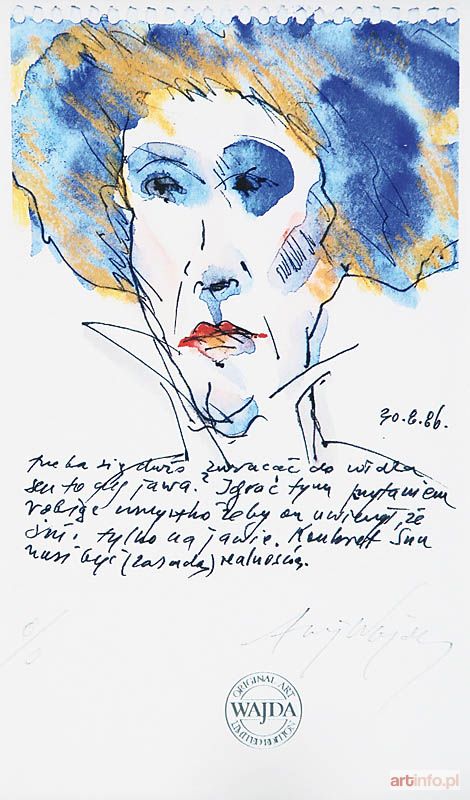 30.6.86.
trzeba się dziś zwracać do widza
sen to czy jawa? Igrać tym pytaniem
robiąc wszystko żeby on uwierzył, że
śni tylko na jawie. Konkret snu
musi być (zasadą) realności.
ORIGINAL ART
WAJDA
LIMITED EDITION
artinfo.pl